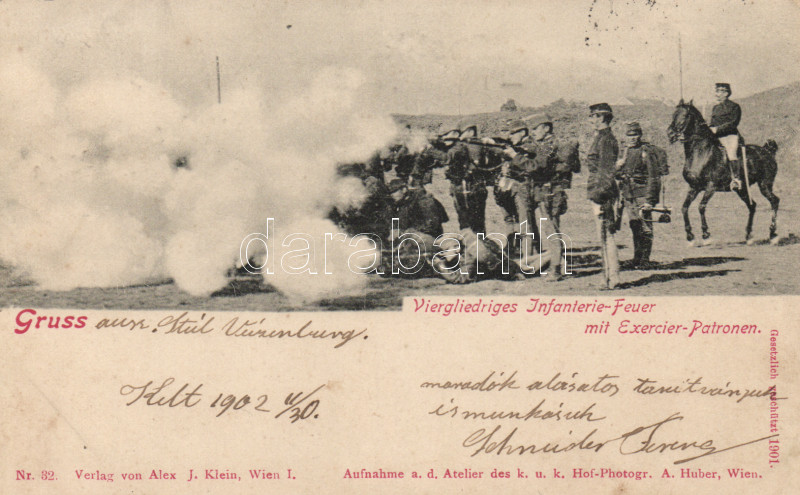 darabanth
Viergliedriges Infanterie-Feuer
mit Exercier-Patronen.
Gruss aus.
Kelt 1902 /30.
maradok alásatos tanitványuk
és munkásuk
Schneider Ferenc
Gesetzlich geschützt 1901.
Nr. 32. Verlag von Alex J. Klein, Wien I. Aufnahme a. d. Atelier des k. u. k. Hof-Photogr. A. Huber, Wien.